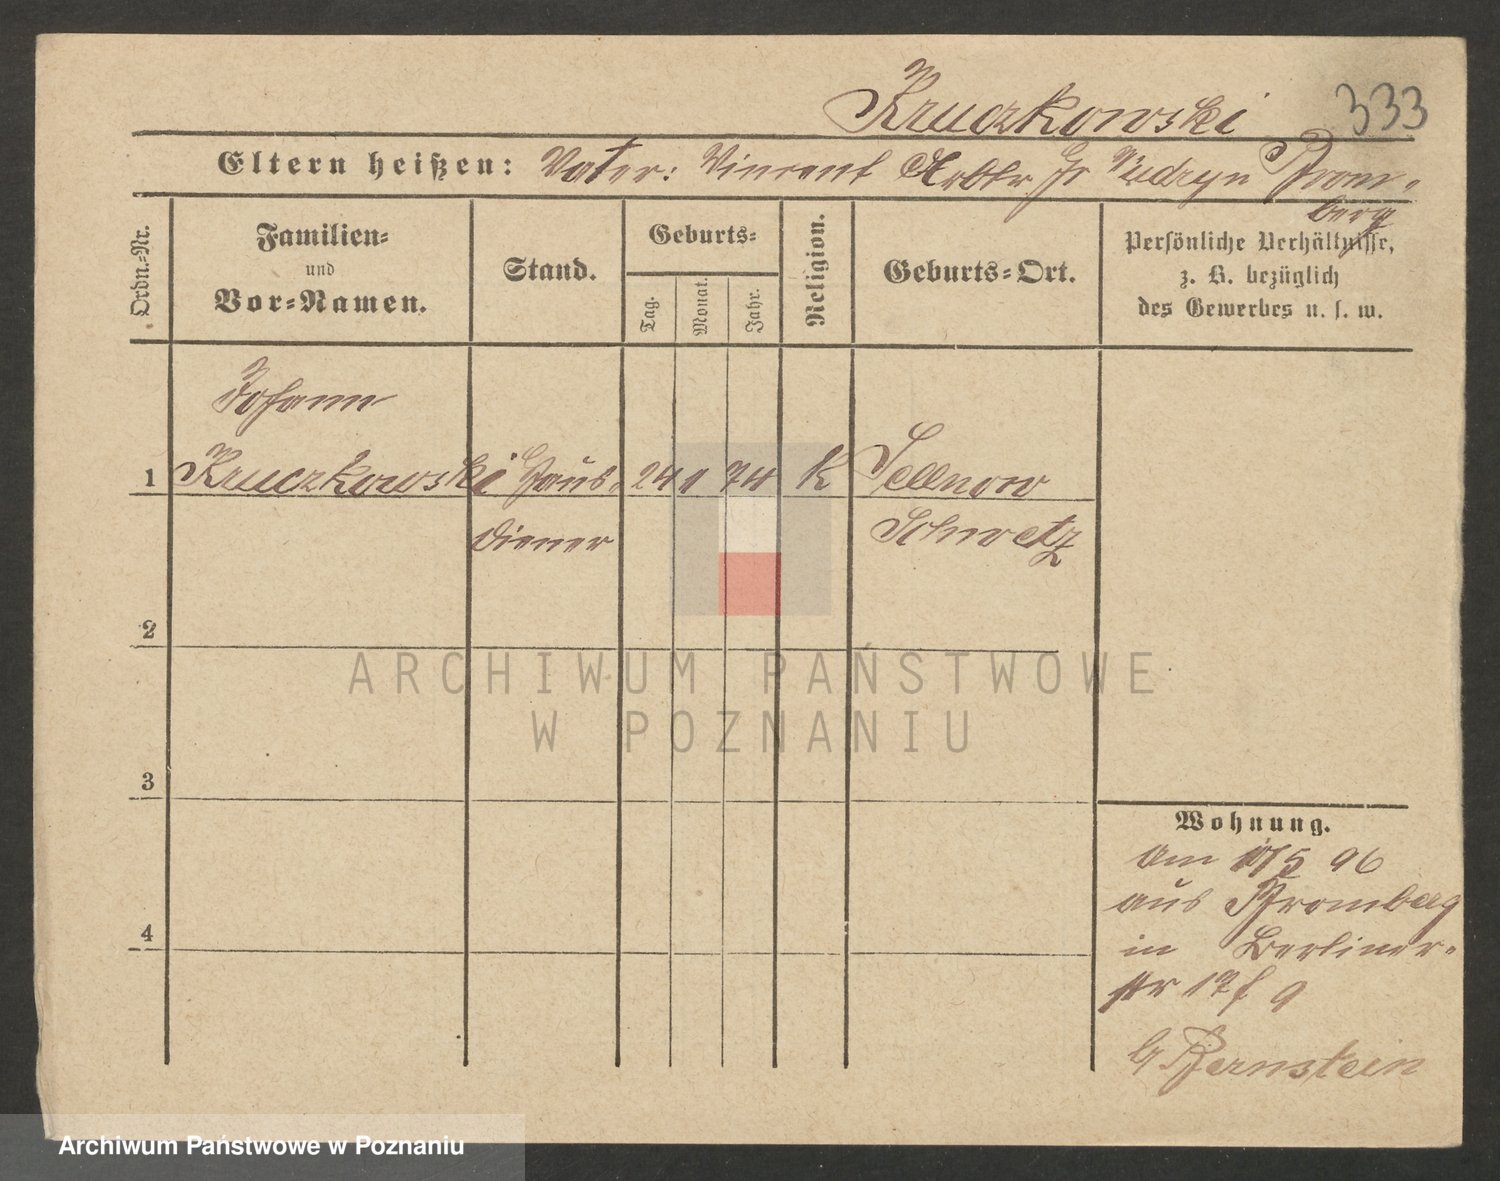 Kruczkowski 333
Eltern heißen: Vater: Vincent Arbtr Gr
Brom-
berg
Ordn.-Nr.
Familien-
und
Vor-Namen.
Stand.
Geburts-
Tag.
Monat.
Jahr.
Religion.
Geburts-Ort.
Persönliche Verhältnisse,
z. B. bezüglich
des Gewerbes u. s. w.
Johann
1 Kruczkowski Haus- 24 1 74 K Sellnow
diener Schwetz
2
ARCHIWUM PAŃSTWOWE
W POZNANIU
3
Wohnung.
Am 5 96
aus Bromberg
in Berliner-
str 17 9
4
b Bernstein
Archiwum Państwowe w Poznaniu